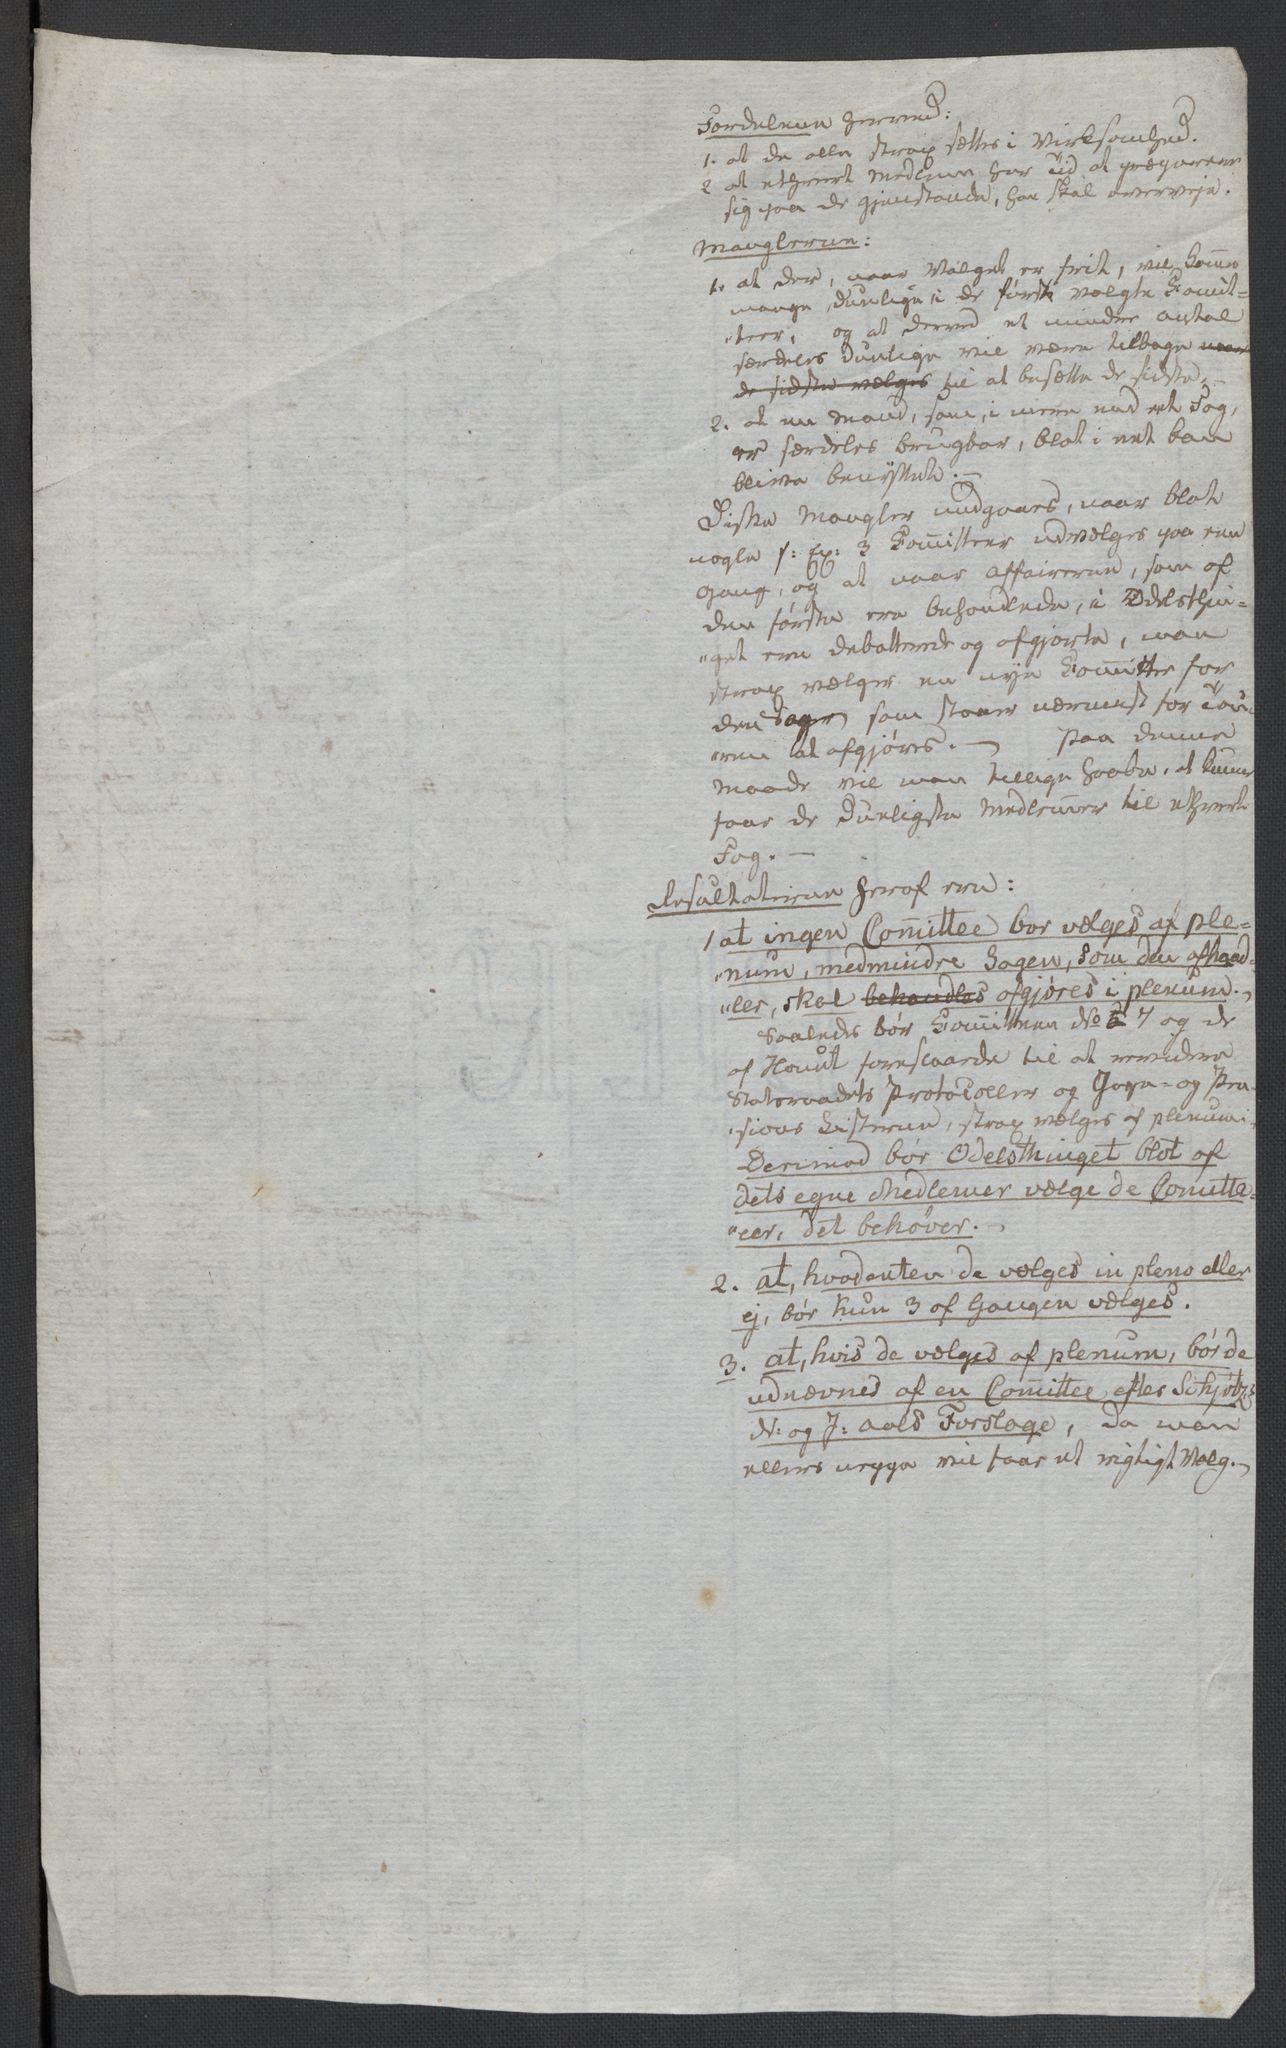 Fordelene herved:
1. at de alle strax sættes i Virksomhed.
2 at ethvert Medlem har Tid at præparere
sig paa de Gjenstande, han skal overveje.
Manglerne:
1. at der, naar Valget er frit, vil komme
mange duelige i de først valgte Committ=
"teer, og at derved et mindre Antal
særdeles duelige vil være tilbage naar
de sidste vælges til at besætte de sidste.
2. at en Mand, som, i mere end eet Fag,
er særdeles brugbar, blot i eet kan
blive benyttet. —
Disse Mangler undgaaes, naar blot
nogle f: Ex: 3 Committeer udvælges paa een
Gang, og at naar Affairerne, som af
den første ere behandlede, i Odelsthin=
"get ere debatterede og afgjorte, man
strax vælger en nye Committee for
den Sag som staaer nærmest for Tou
ren at afgjøres. — Paa denne
Maade vil man tillige haabe, at kunne
faae de dueligste Medlemmer til ethvert
Fag. —
Resultaterne heraf ere:
1 at ingen Committee bør vælges af ple=
"num, medmindre Sagen, som den afhand=
"ler, skal behandles afgjøres i plenum.
Saaledes bør Committeen No 7 og de
af Hount foreslaaede til at revidere
Statsraadets Protocoller og Gage- og Pen
"sions Listerne, strax vælges af plenum.
Derimod bør Odelsthinget blot af
dets egne Medlemmer vælge de Committe=
"eer, det behøver.
2. at, hvadenten de vælges in pleno eller
ej, bør kun 3 af Gangen vælges.
3. at, hvis de vælges af plenum, bør de
udnævnes af en Committee efter Schjøtz's
N: og J: Aals Forslage, da man
ellers neppe vil faae et rigtigt Valg.